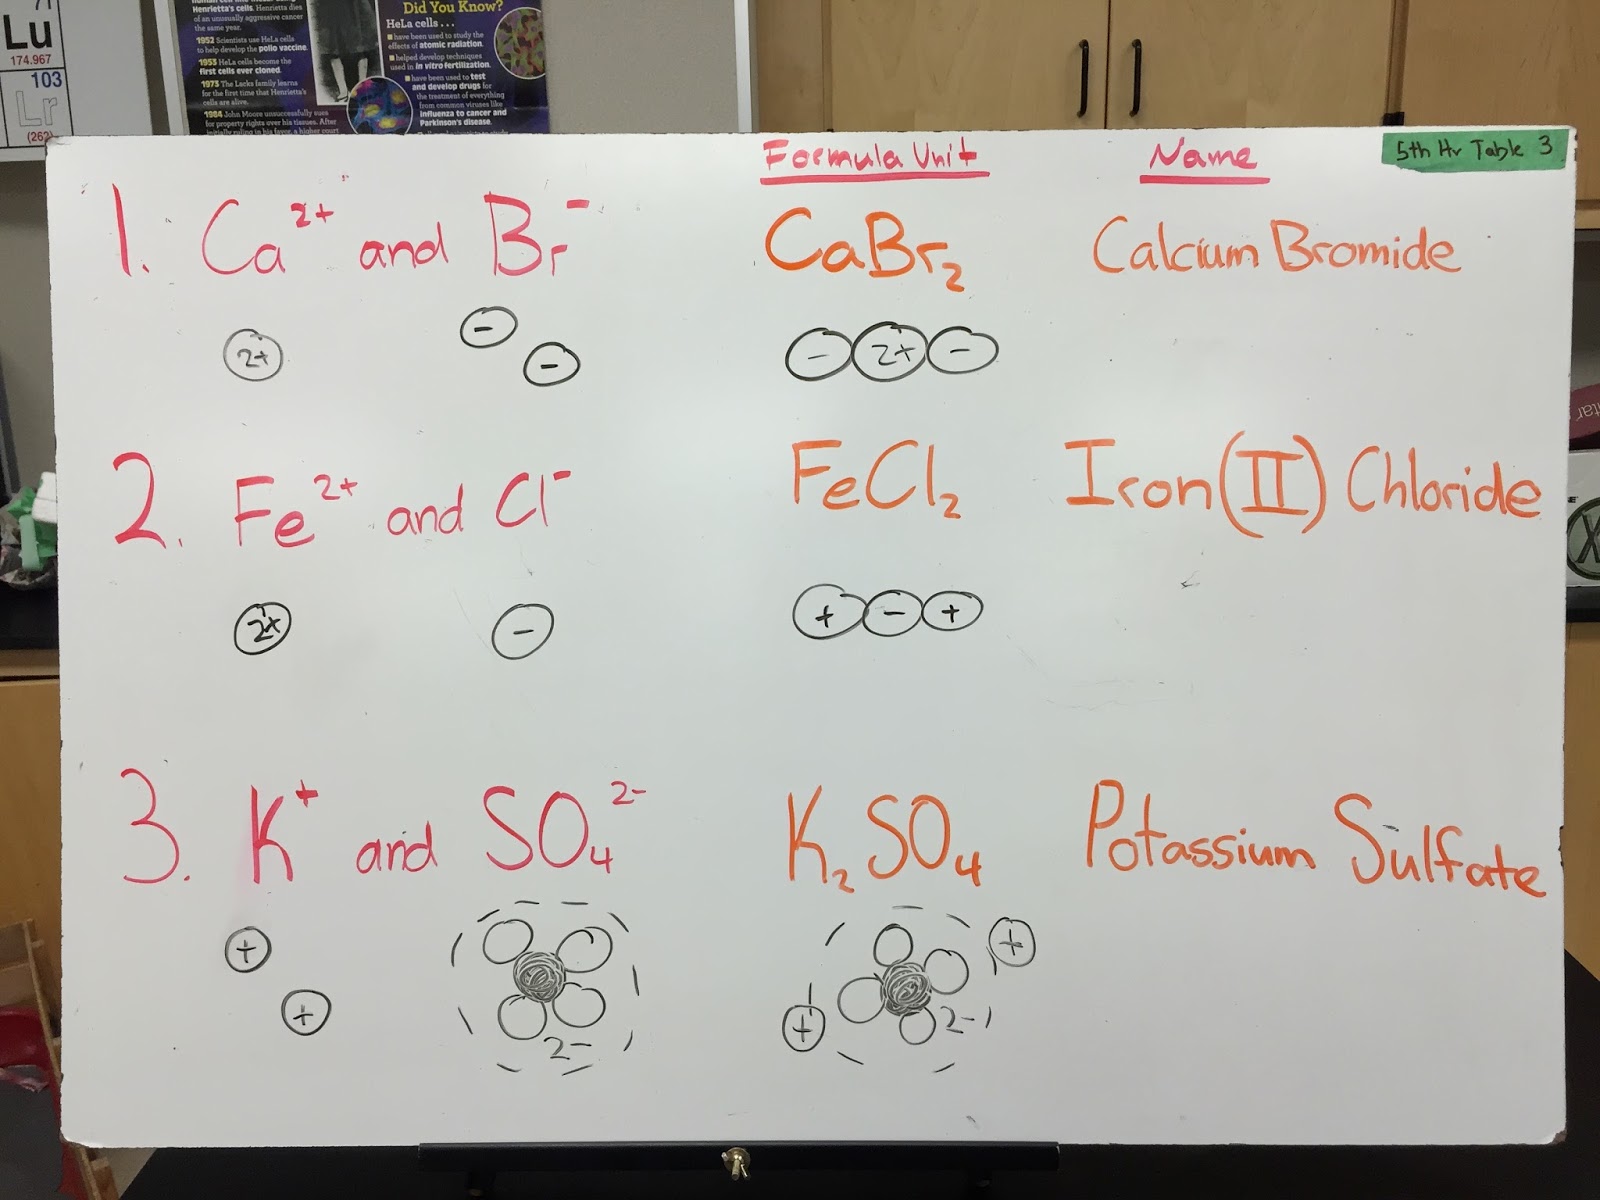 Lu
174.967
103
Lr
(262)
Henrietta's cells. Henrietta dies
of an unusually aggressive cancer
the same year.
1952 Scientists use HeLa cells
to help develop the polio vaccine.
1953 HeLa cells become the
first cells ever cloned.
1973 The Lacks family learns
for the first time that Henrietta's
cells are alive.
1984 John Moore unsuccessfully sues
for property rights over his tissues. After
initially ruling in his favor, a higher court
Did You Know?
HeLa cells . . .
have been used to study the
effects of atomic radiation.
helped develop techniques
used in in vitro fertilization.
have been used to test
and develop drugs for
the treatment of everything
from common viruses like
influenza to cancer and
Parkinson's disease.
Formula Unit Name
5th Hr Table 3
1. Ca2+ and Br- CaBr2 Calcium Bromide
2+ - - - 2+ -
2. Fe2+ and Cl- FeCl2 Iron (II) Chloride
2+ - + - +
3. K+ and SO4 2- K2SO4 Potassium Sulfate
+ + 2- + 2- +
X